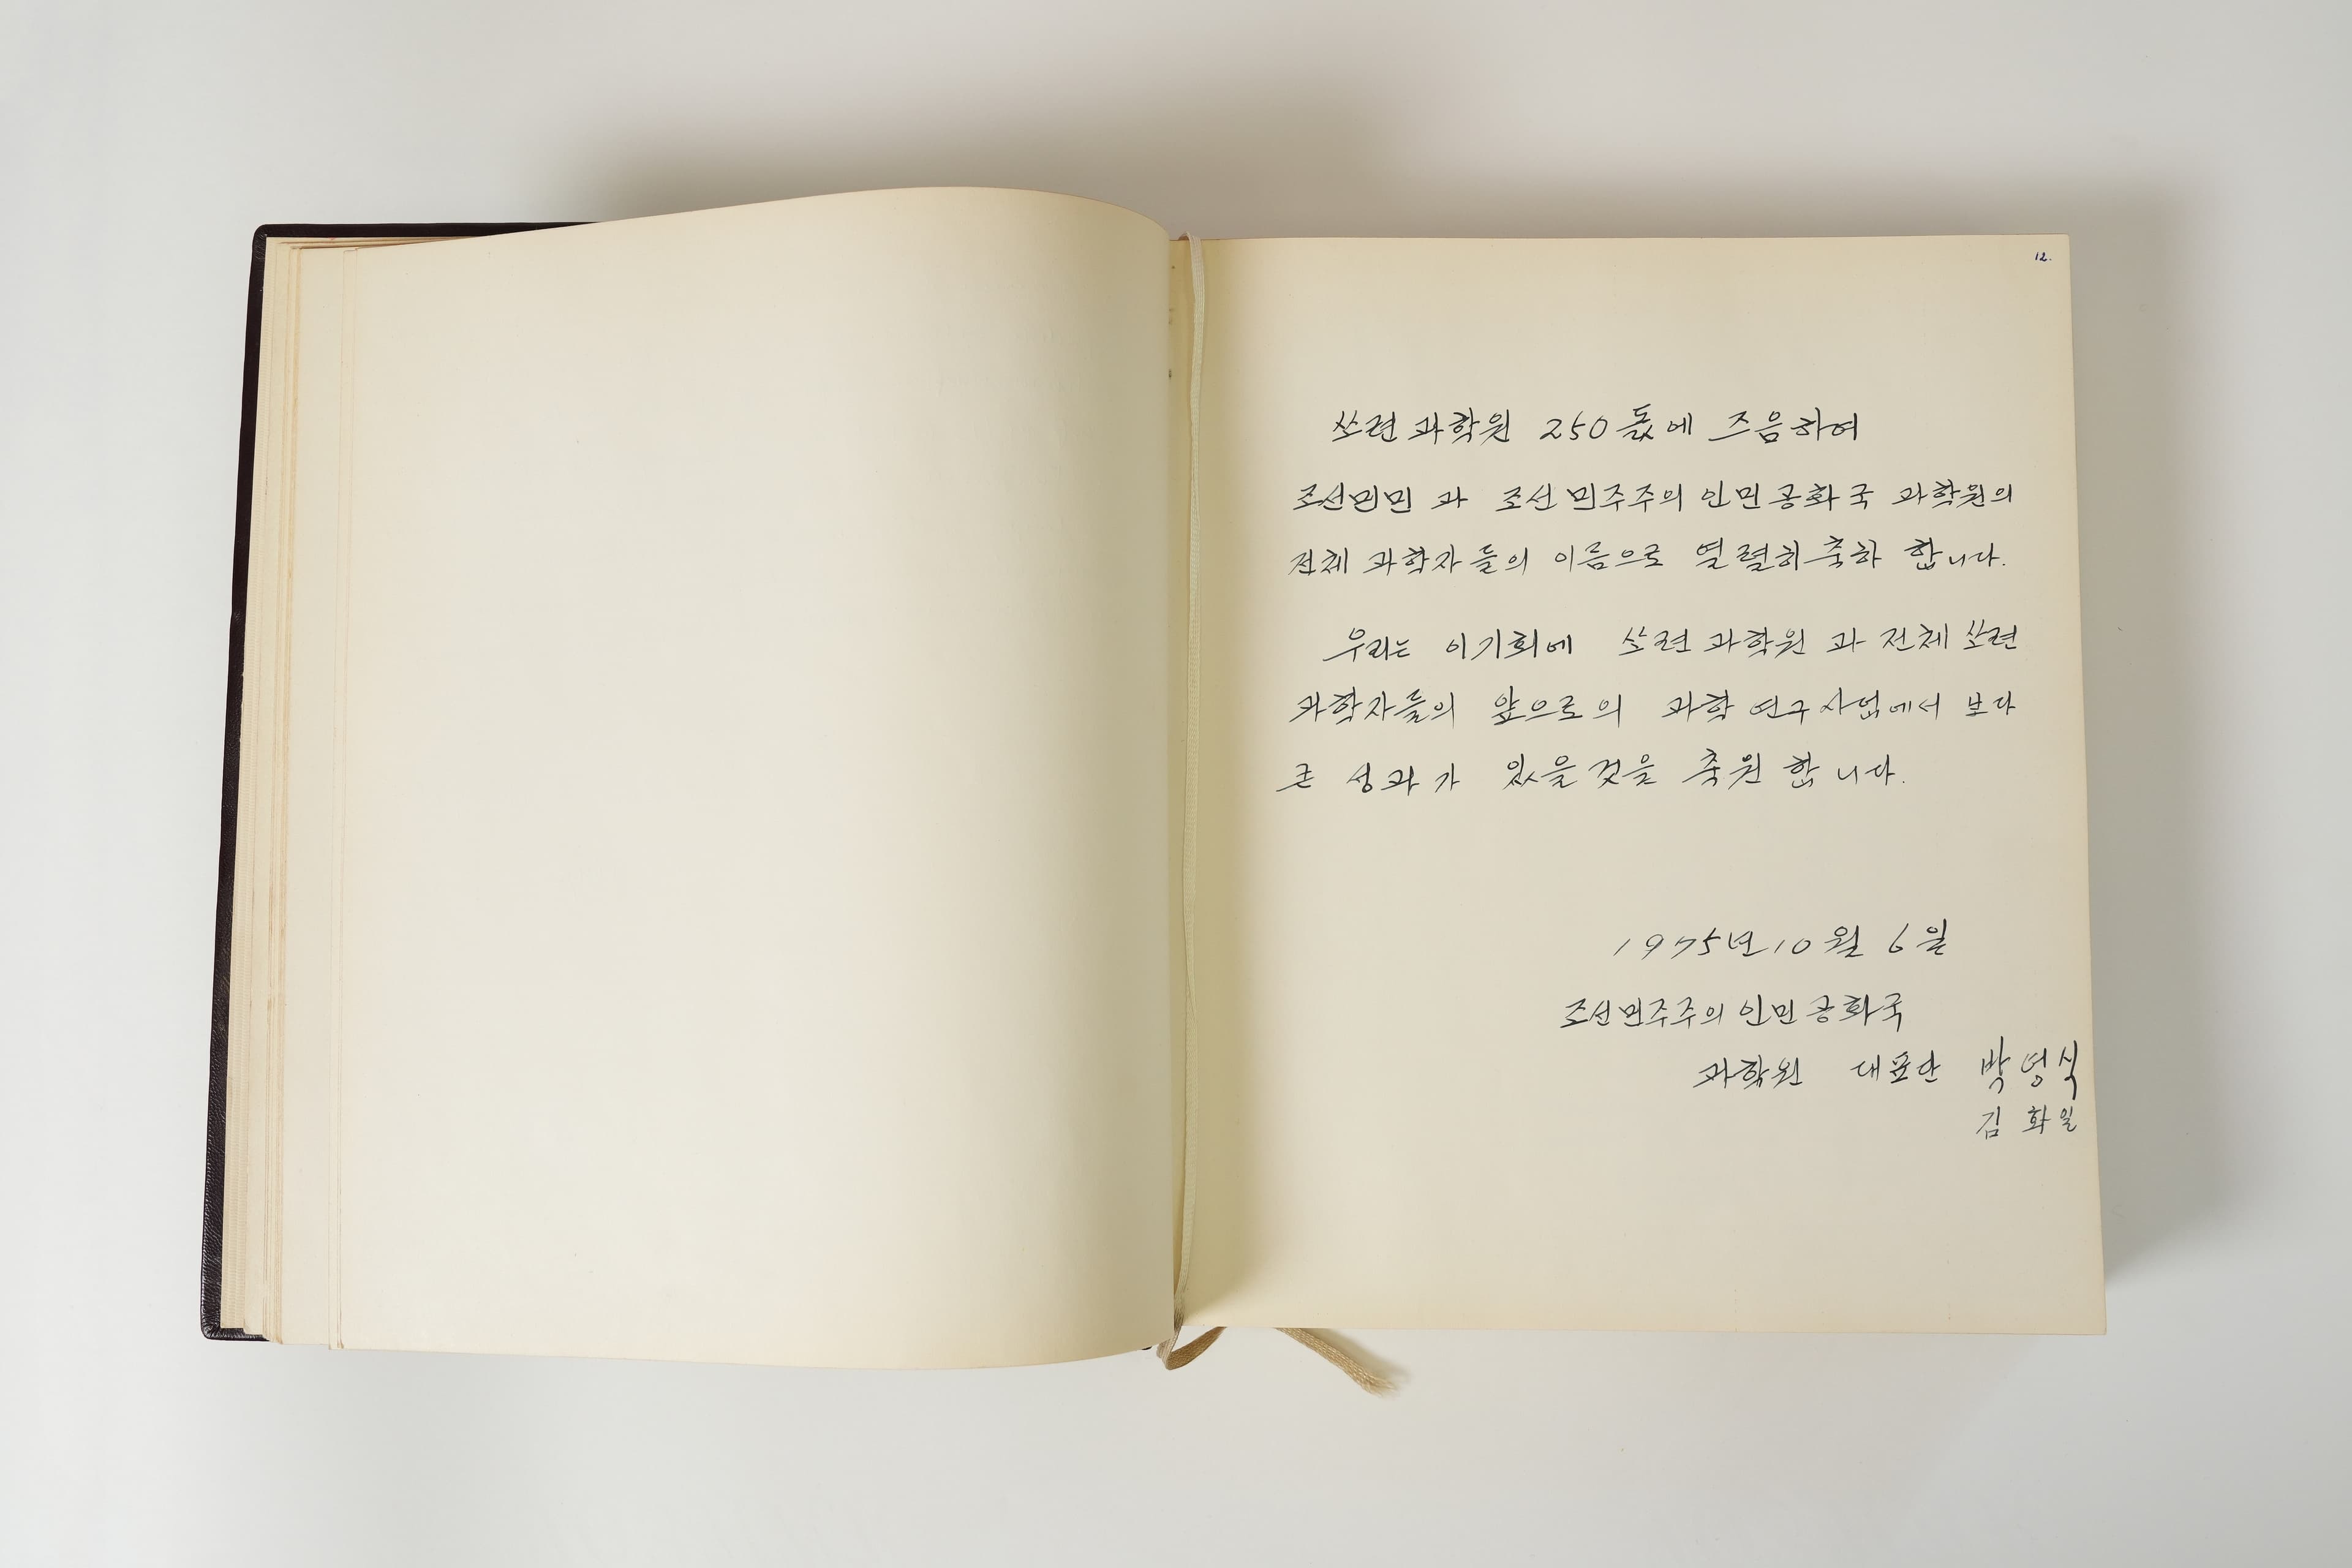 12.
쏘련 과학원 250돐에 즈음하여
조선인민 과 조선 민주주의 인민 공화국 과학원의
전체 과학자 들의 이름으로 열렬히 축하 합니다.
우리는 이기회에 쏘련 과학원 과 전체 쏘련
과학자들의 앞으로의 과학 연구 사업에서 보다
큰 성과가 있을것을 축원 합니다.
1975년 10월 6일
조선민주주의 인민 공화국
과학원 대표단 박영식
김 화일